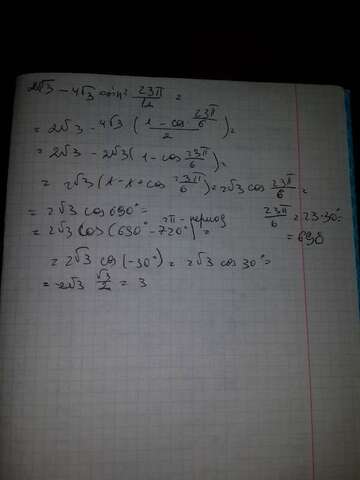 2√3 − 4√3 sin² 23π/12 =
= 2√3 − 4√3 ( (1 − cos 23π/6) / 2 ) =
= 2√3 − 2√3 ( 1 − cos 23π/6 ) =
= 2√3 ( 1 − 1 + cos 23π/6 ) = 2√3 cos 23π/6 =
= 2√3 cos 690° =
2π − период
= 2√3 cos (690° − 720°) =
23π/6 = 23·30° =
= 690
= 2√3 cos (−30°) = 2√3 cos 30° =
= 2√3 √3/2 = 3